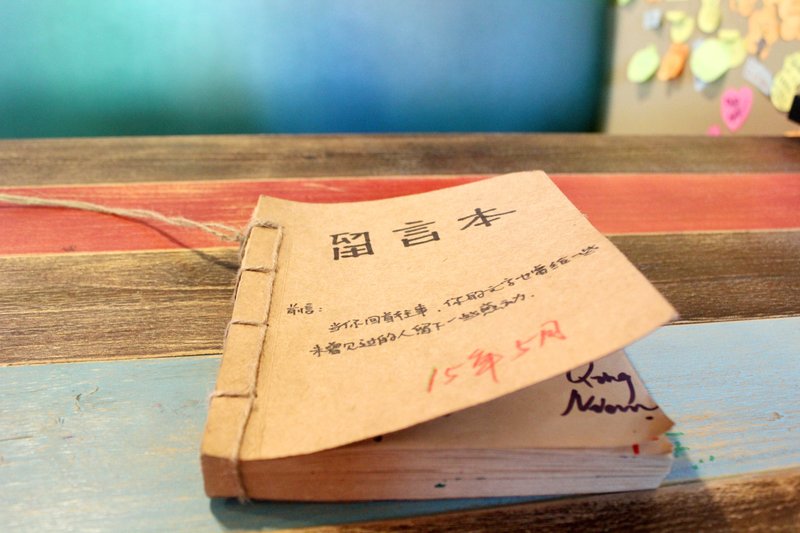 留言本
前言:
当你回首往事，你的文字也会给一些
未曾见过的人留下一些感动.
15年5月